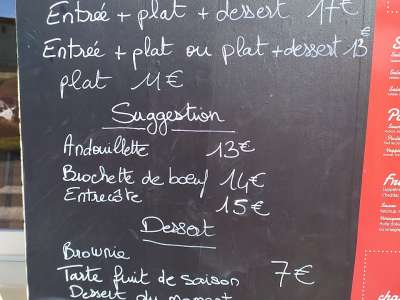 Entrée + plat + dessert 17€
Entrée + plat ou plat + dessert 13€
plat 11€
Suggestion
Andouillette 13€
Brochette de bœuf 14€
Entrecôte 15€
Dessert
Brownie
Tarte fruit de saison 7€
Dessert du moment